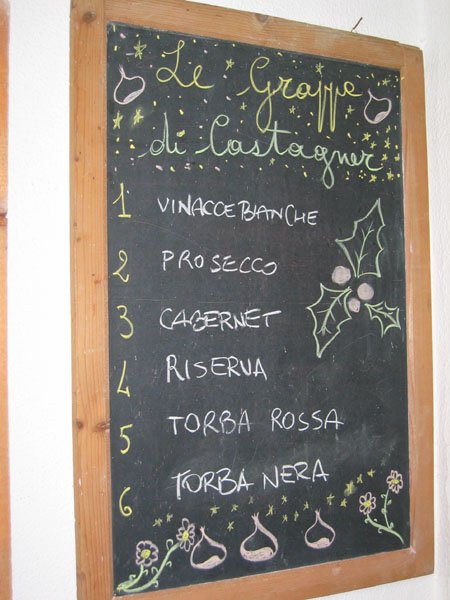 Le Grappe
di Castagner
1 VINACCE BIANCHE
2 PROSECCO
3 CABERNET
4 RISERVA
5 TORBA ROSSA
6 TORBA NERA